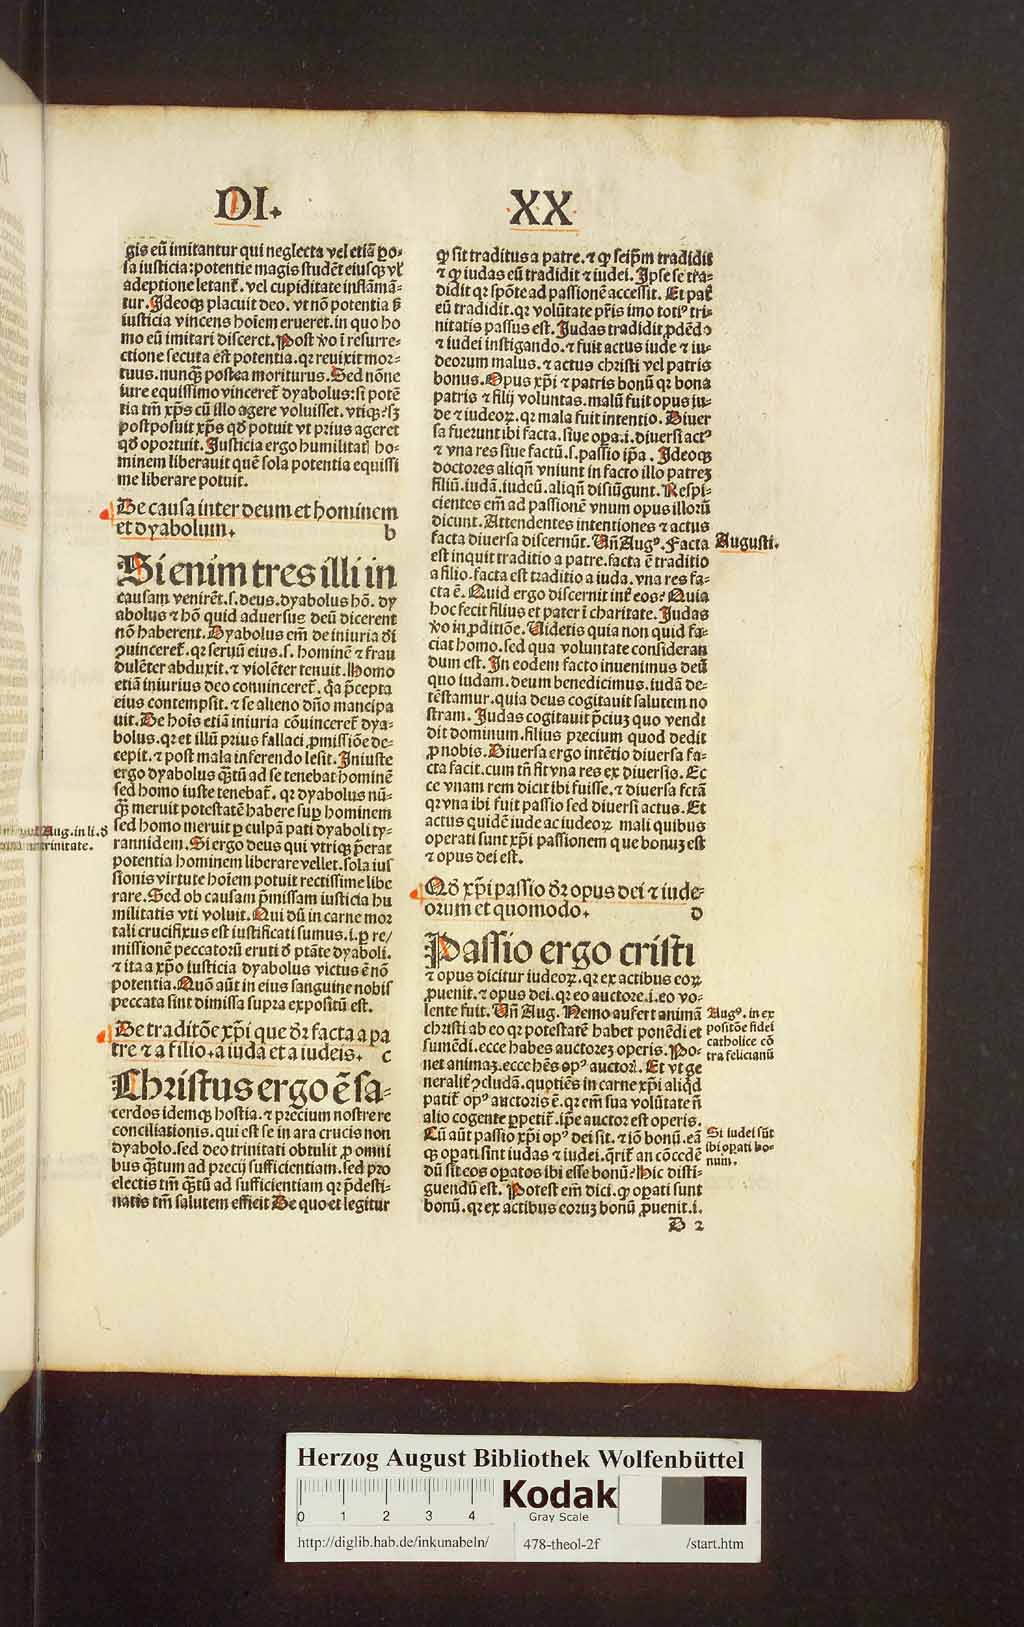 DI.
XX
gis eū imitantur qui neglecta vel etiā ꝓo-
sa iusticia: potentie magis studēt eiusqꝫ vl'
adeptione letant᷑. vel cupiditate inflāmā-
tur. Ideoqꝫ placuit deo. vt nō potentia sꝫ
iusticia vincens hoīem erueret. in quo ho
mo eū imitari disceret. Post ꝟo ī resurre-
ctione secuta est potentia. qꝛ reuixit mor-
tuus. nunqꝫ̄ postea moriturus. Sed nōne
iure equissimo vinceret᷑ dyabolus: si potē
tia tm̄ xp̄s cū illo agere voluisset. vtiqꝫ: sꝫ
postposuit xp̄s qd̄ potuit vt prius ageret
qd̄ oportuit. Justicia ergo humilitatꝭ ho-
minem liberauit quē sola potentia equissi
me liberare potuit.
De causa inter deum et hominem
et dyabolum. b
Si enim tres illi in
causam venirēt. s. deus. dyabolus hō. dy
abolus ⁊ hō quid aduersus deū dicerent
nō haberent. Dyabolus em̄ de iniuria dei
ꝯuinceret᷑. qꝛ seruū eius. s. hominē ⁊ frau
dulēter abduxit. ⁊ violēter tenuit. Homo
etiā iniurius deo conuinceret᷑. qꝛ p̄cepta
eius contempsit. ⁊ se alieno dn̄o mancipa
uit. De hoīs etiā iniuria cōuinceret᷑ dya-
bolus. qꝛ et illū prius fallaci ꝓmissiōe de-
cepit. ⁊ post mala inferendo lesit. Iniuste
ergo dyabolus qꝫ̄tū ad se tenebat hominē
sed homo iuste tenebat᷑. qꝛ dyabolus nū-
qꝫ̄ meruit potestatē habere suꝑ hominem
sed homo meruit ꝑ culpā pati dyaboli ty-
rannidem. Si ergo deus qui vtriqꝫ p̄erat
potentia hominem liberare vellet. sola ius
sionis virtute hoīem potuit rectissime libe
rare. Sed ob causam p̄missam iusticia hu
militatis vti voluit. Qui dū in carne mor
tali crucifixus est iustificati sumus. i. ꝑ re/
missionē peccatorū eruti d' ptāte dyaboli.
⁊ ita a xp̄o iusticia dyabolus victus ē nō
potentia. Quō aūt in eius sanguine nobis
peccata sint dimissa supra expositū est.
De traditōe xp̄i que dr̄ facta a pa
tre ⁊ a filio. a iuda et a iudeis. c
Christus ergo ē sa-
cerdos idemqꝫ hostia. ⁊ precium nostre re
conciliationis. qui est se in ara crucis non
dyabolo. sed deo trinitati obtulit ꝓ omni
bus qꝫ̄tum ad precij sufficientiam. sed pro
electis tm̄ qꝫ̄tū ad sufficientiam qꝛ p̄desti-
natis tm̄ salutem efficit De quo et legitur
Aug. in li. d'
trinitate.
ꝙ sit traditus a patre. ⁊ ꝙ seip̄m tradidit
⁊ ꝙ iudas eū tradidit ⁊ iudei. Ipse se tra-
didit qꝛ spōte ad passionē accessit. Et pat᷑
eū tradidit. qꝛ volūtate pr̄is imo totiꝰ tri-
nitatis passus est. Judas tradidit ꝓdēdo
⁊ iudei instigando. ⁊ fuit actus iude ⁊ iu-
deorum malus. ⁊ actus christi vel patris
bonus. Opus xp̄i ⁊ patris bonū qꝛ bona
patris ⁊ filij voluntas. malū fuit opus iu-
de ⁊ iudeoꝝ. qꝛ mala fuit intentio. Diuer
sa fuerunt ibi facta. siue oꝑa. i. diuersi actꝰ
⁊ vna res siue factū. s. passio ip̄a. Ideoqꝫ
doctores aliqn̄ vniunt in facto illo patreꝫ
filiū. iudā. iudeū. aliqn̄ disiūgunt. Respi-
cientes em̄ ad passionē vnum opus illorū
dicunt. Attendentes intentiones ⁊ actus
facta diuersa discernūt. Vn̄ Augꝰ. Facta
est inquit traditio a patre. facta ē traditio
a filio. facta est traditio a iuda. vna res fa-
cta ē. Quid ergo discernit int᷑ eos? Quia
hoc fecit filius et pater ī charitate. Judas
ꝟo in ꝓditiōe. Videtis quia non quid fa-
ciat homo. sed qua voluntate consideran
dum est. In eodem facto inuenimus deū
quo iudam. deum benedicimus. iudā de-
testamur. quia deus cogitauit salutem no
stram. Judas cogitauit p̄ciuꝫ quo vendi
dit dominum. filius precium quod dedit
ꝓ nobis. Diuersa ergo intētio diuersa fa-
cta facit. cum tn̄ sit vna res ex diuersio. Ec
ce vnam rem dicit ibi fuisse. ⁊ diuersa fctā
qꝛ vna ibi fuit passio sed diuersi actus. Et
actus quidē iude ac iudeoꝝ mali quibus
operati sunt xp̄i passionem que bonuꝫ est
⁊ opus dei est.
Qd' xp̄i passio dr̄ opus dei ⁊ iude-
orum et quomodo. d
Passio ergo cristi
⁊ opus dicitur iudeoꝝ. qꝛ ex actibus eoꝝ
ꝓuenit. ⁊ opus dei. qꝛ eo auctore. i. eo vo-
lente fuit. Vn̄ Aug. Nemo aufert animā
christi ab eo qꝛ potestatē habet ponēdi et
sumēdi. ecce habes auctoreꝫ operis. Po-
net animaꝫ. ecce hēs opꝰ auctorꝭ. Et vt ge
neralit᷑ ꝯcludā. quotiēs in carne xp̄i aliqd
patit᷑ opꝰ auctoris ē. qꝛ em̄ sua volūtate n̄
alio cogente ꝑpetit᷑. ip̄e auctor est operis.
Cū aūt passio xp̄i opꝰ dei sit. ⁊ iō bonū. eā
qꝫ oꝑati sint iudas ⁊ iudei. q̄rit᷑ an cōcedē
dū sit eos oꝑatos ibi esse bonū? Hic disti-
guendū est. Potest em̄ dici. ꝙ oꝑati sunt
bonū. qꝛ ex actibus eoruꝫ bonū ꝓuenit. i.
D 2
Augusti.
Augꝰ. in ex
positōe fidei
catholice cō
tra felicianū
Si iudei sūt
ibi oꝑati bo-
num.
Herzog August Bibliothek Wolfenbüttel
0 1 2 3 4
Kodak
Gray Scale
http://diglib.hab.de/inkunabeln/ 478-theol-2f /start.htm